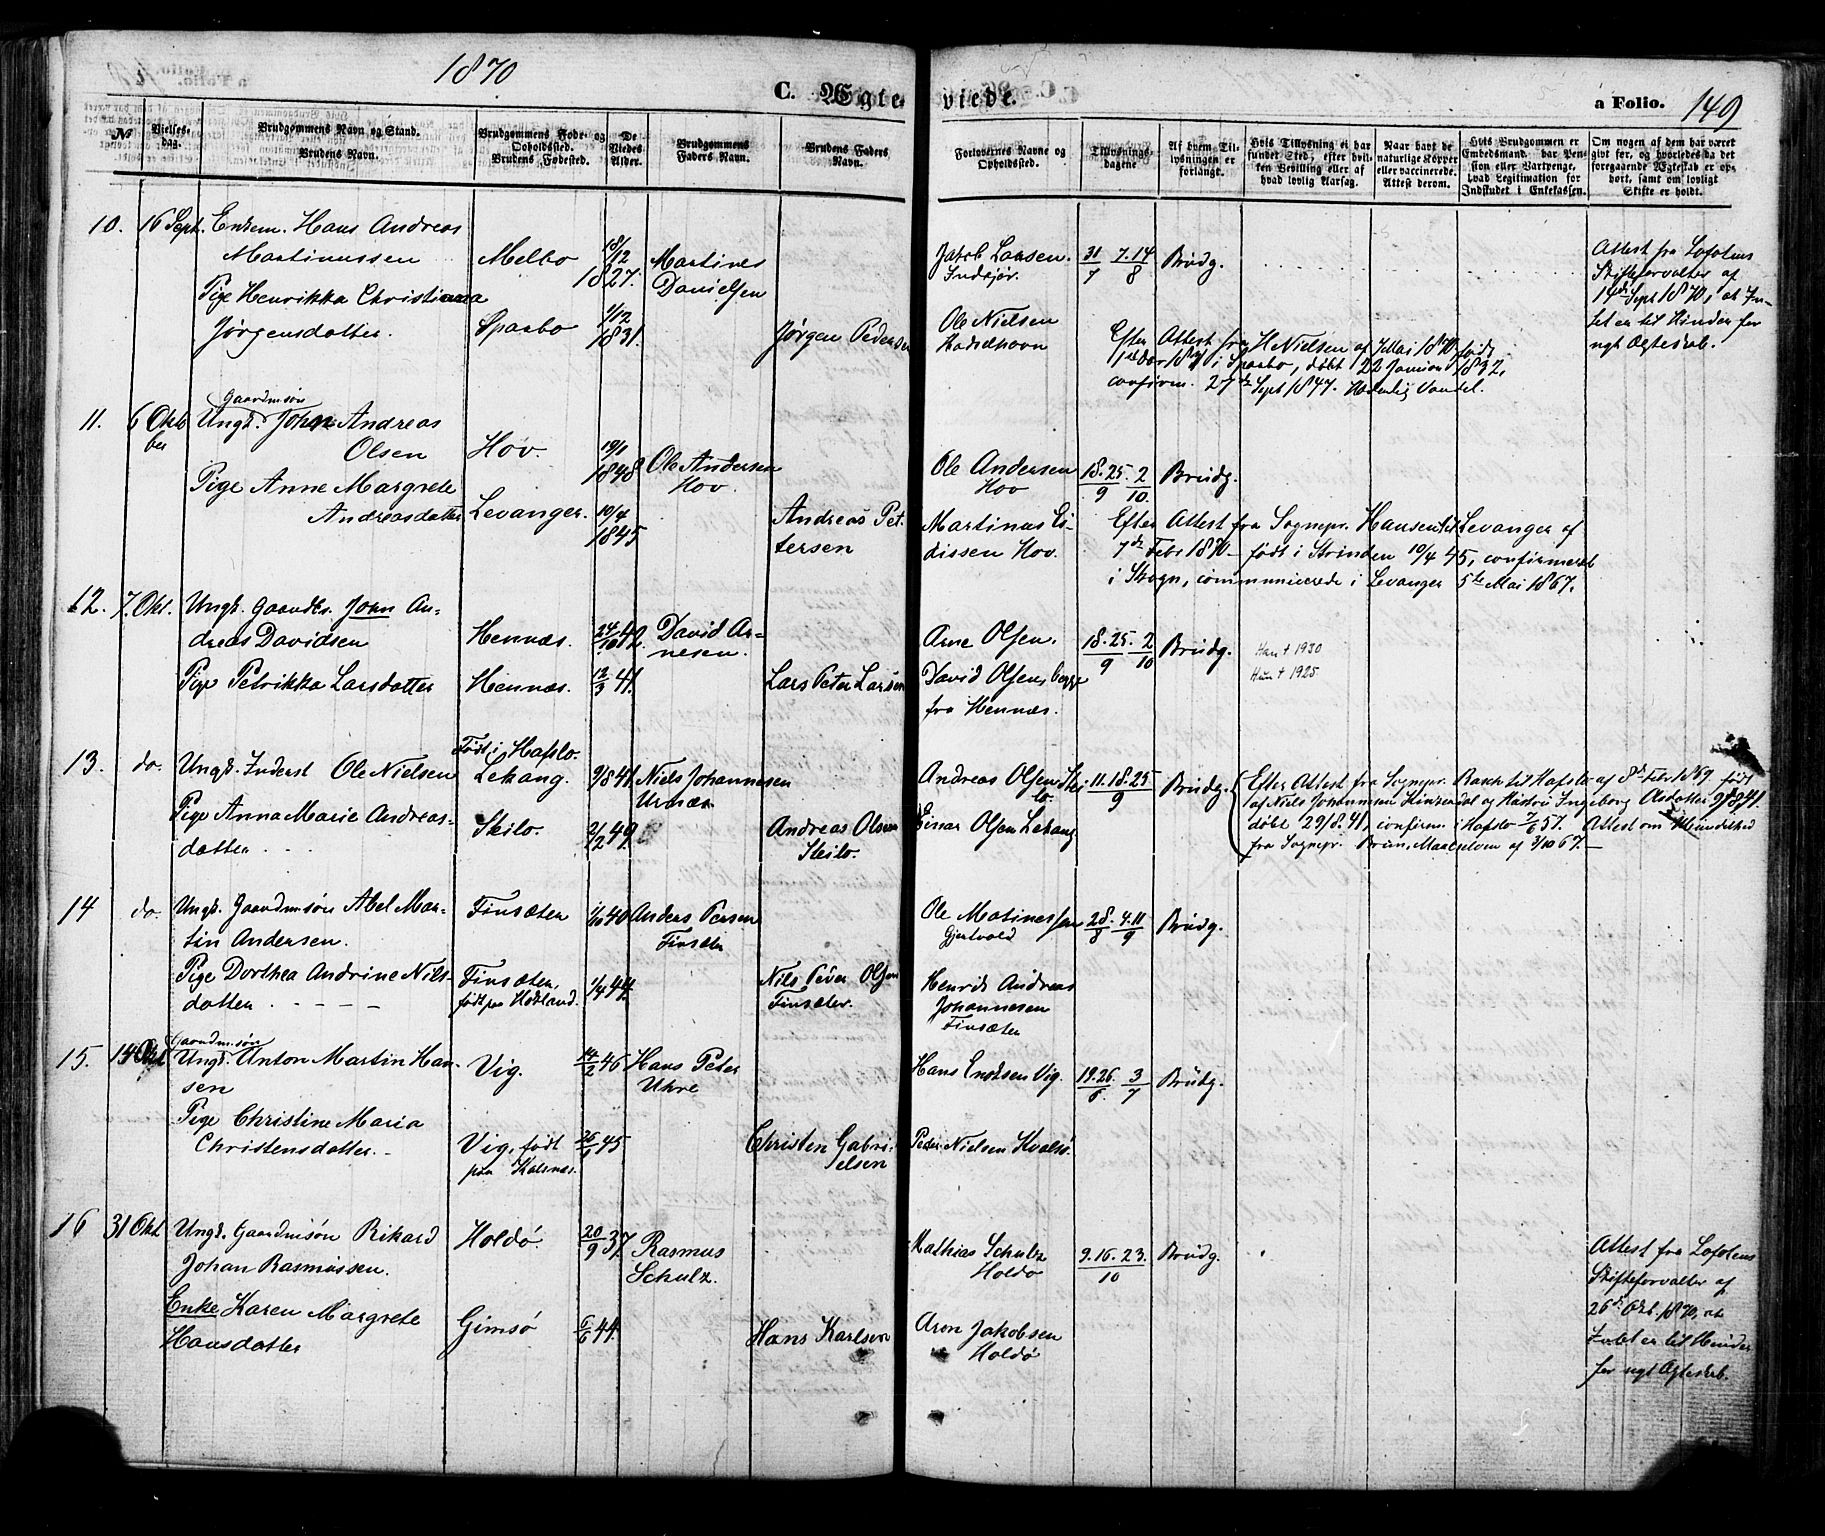 1870
C. Ægteviede.
a Folio. 149
№
Vielses-dag.
Brudgommens Navn og Stand.
Brudens Navn.
Brudgommens Føde- og Opholdssted.
Brudens Fødested.
De Viedes Alder.
Brudgommens Faders Navn.
Brudens Faders Navn.
Forlovernes Navne og Opholdssted.
Tillysnings-dagene
Af hvem Tillysningen er forlangt.
Hvis Tillysning ei har fundet Sted, efter hvilken Bevilling eller af hvad lovlig Aarsag.
Naar havt de naturlige Kopper eller vaccinerede. Attest derom.
Hvis Brudgommen er Embedsmand, har Pension eller Vartpenge, hvad Legitimation for Indskudet i Enkekassen.
Om nogen af dem har været givt før, og hvorledes da det foregaaende Ægteskab er ophørt, samt om lovligt Skifte er holdt.
10. 16 Sept. Enkem. Hans Andreas
Martinussen Melbo 18/12 1827. Martines Danielsen
Pige Henrikka Christianna
Jørgensdatter. Sparbo 1/12 1831. Jørgen Pedersen
Jakob Larsen. 31/7 7.14/8 Brudg.
Indsjør.
Ole Nielsen
Hadselhavn
Efter Attest fra H Nielsen af 7 Mai 1870, født
i Sparbo, døbt 22 Januar 1832,
confirm. 27de Sept 1847. Hæderlig Vandel.
Attest fra Lofotens
Skifteforvalter af
14de Sept 1870, at In-
tet er til Hinder for
nyt Ægteskab.
11. 6 Oktober Gaardmsøn
Ungk. Johan Andreas
Olsen Hov. 19/1 1848 Ole Andersen Hov.
Pige Anne Margrete
Andreasdatter Levanger. 10/4 1845 Andreas Pettersen
Ole Andersen 18.25/9 2/10 Brudg.
Hov
Martinus Edissen Hov.
Efter Attest fra Sognepr. Hansen til Levanger af
7de Febr 1870 født i Strinden 10/4 45, confirmeret
i Skogn, communicerede i Levanger 5te Mai 1867.
12. 7. Okt. Ungk. Gaardbr. John An-
dreas Davidsen Hennæs. 24/10 42. David Arnesen.
Pige Petrikka Larsdatter Hennæs. 12/3 41. Lars Peter Larsen
Arne Olsen. 18.25/9 2/10 Brudg.
David Olsen begge
fra Hennæs.
Han † 1930
Hun † 1925
13. do. Ungk. Inderst Ole Nielsen Født i Hafslo. Lekang. 9/8 41 Niels Johannesen Urnæs
Pige Anna Marie Andreas-
datter Skilo. 2/2 49 Andreas Olsen Skilo.
Andreas Olsen Skilo 11.18.25/9 Brudg.
Einar Olsen Lekang
Efter Attest fra Sognepr. Rasch til Hafslo af 8de Febr 1869 født
af Niels Johannesen Kinzerdal og Hustru Ingeborg Olsdatter 9/8 41.
døbt 29/8.41, confirm. i Hafslo 7/6 57. Attest om Myndighed
fra Sognepr. Brun, Maalselven af 3/10 67.
14 do. Ungk. Gaardmsøn Abel Mar-
tin Andersen. Finsæter 1/10 40 Anders Persen Finsæter
Pige Dorthea Andrine Nils-
datter Finsæter, født paa Hadland. 1/4 44. Nils Peder Olsen Finsæter.
Ole Matinessen 28/8 4.11/9 Brudg.
Gjertvold
Henrik Andreas
Johannesen
Finsæter
15. 14 Okt Gaardmsøn
Ungk. Anton Martin Han-
sen Vig. 14/2 46 Hans Peter Uhre
Pige Christine Maria
Christensdatter. Vig, født paa Kalsnæs. 26/1 45 Christen Gabrielsen
Hans Enoksen Vig. 19.26/6 3/7 Brudg.
Peder Nielsen Kvalsø.
16 31 Okt Ungk. Gaardmsøn Rikard
Johan Rasmussen. Holdø. 20/9 37. Rasmus Schulz.
Enke Karen Margrete
Hansdatter Gimsø 6/6 44. Hans Karlsen
Mathias Schulz 9.16.23./10 Brudg.
Holdø
Aron Jakobsen
Holdø
Attest fra Lofotens
Skifteforvalter af
26de Okt. 1870, at
Intet er til Hinder
for nyt Ægteskab.